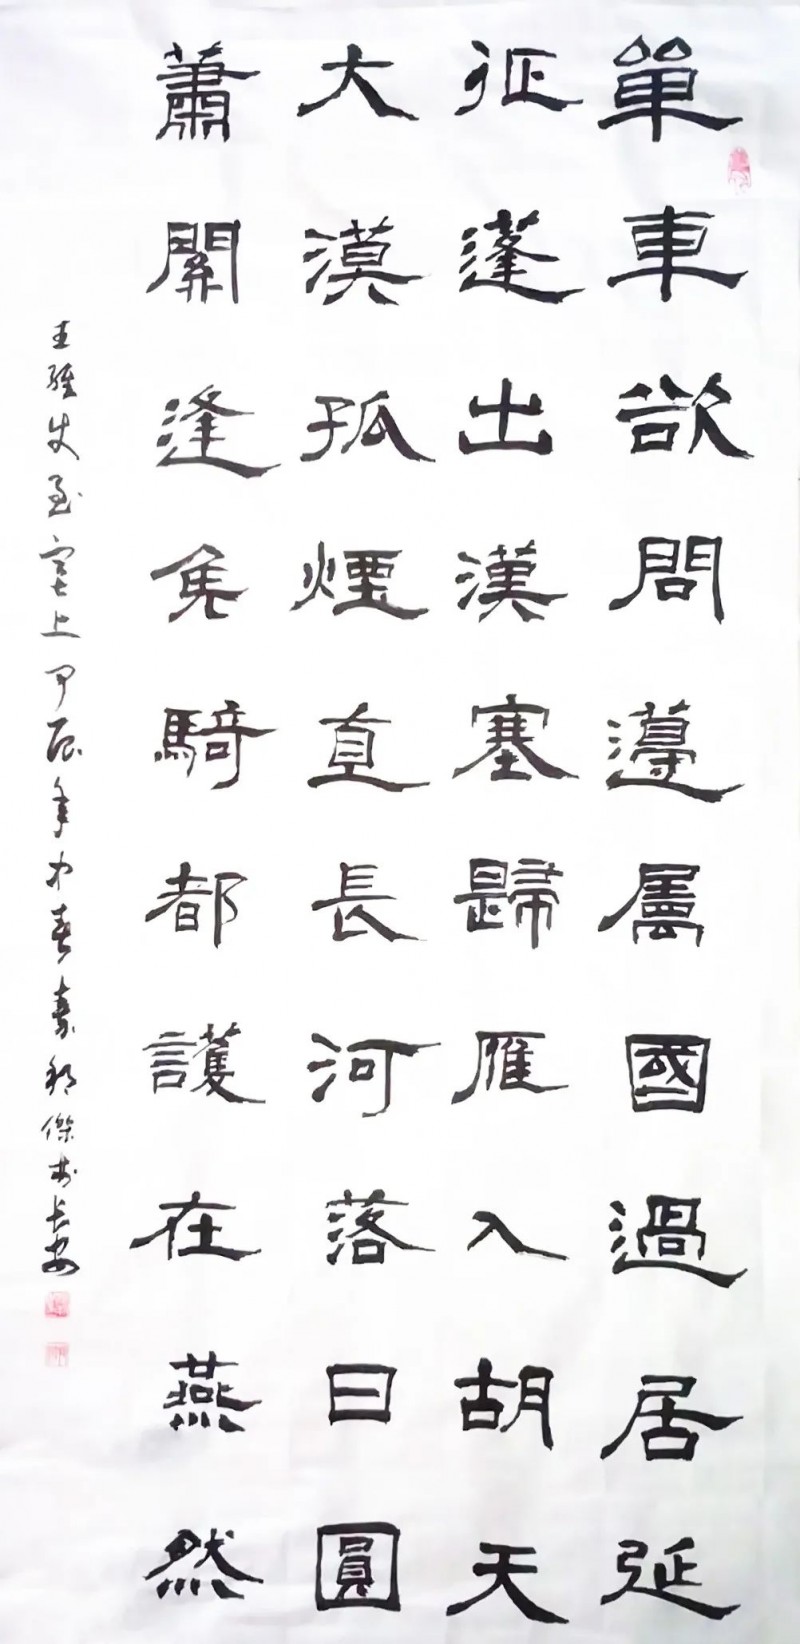 單車欲問邊屬國過居延
征蓬出漢塞歸雁入胡天
大漠孤煙直長河落日圓
蕭關逢矦騎都護在燕然
王維使至塞上甲辰年中春秦傑於長安